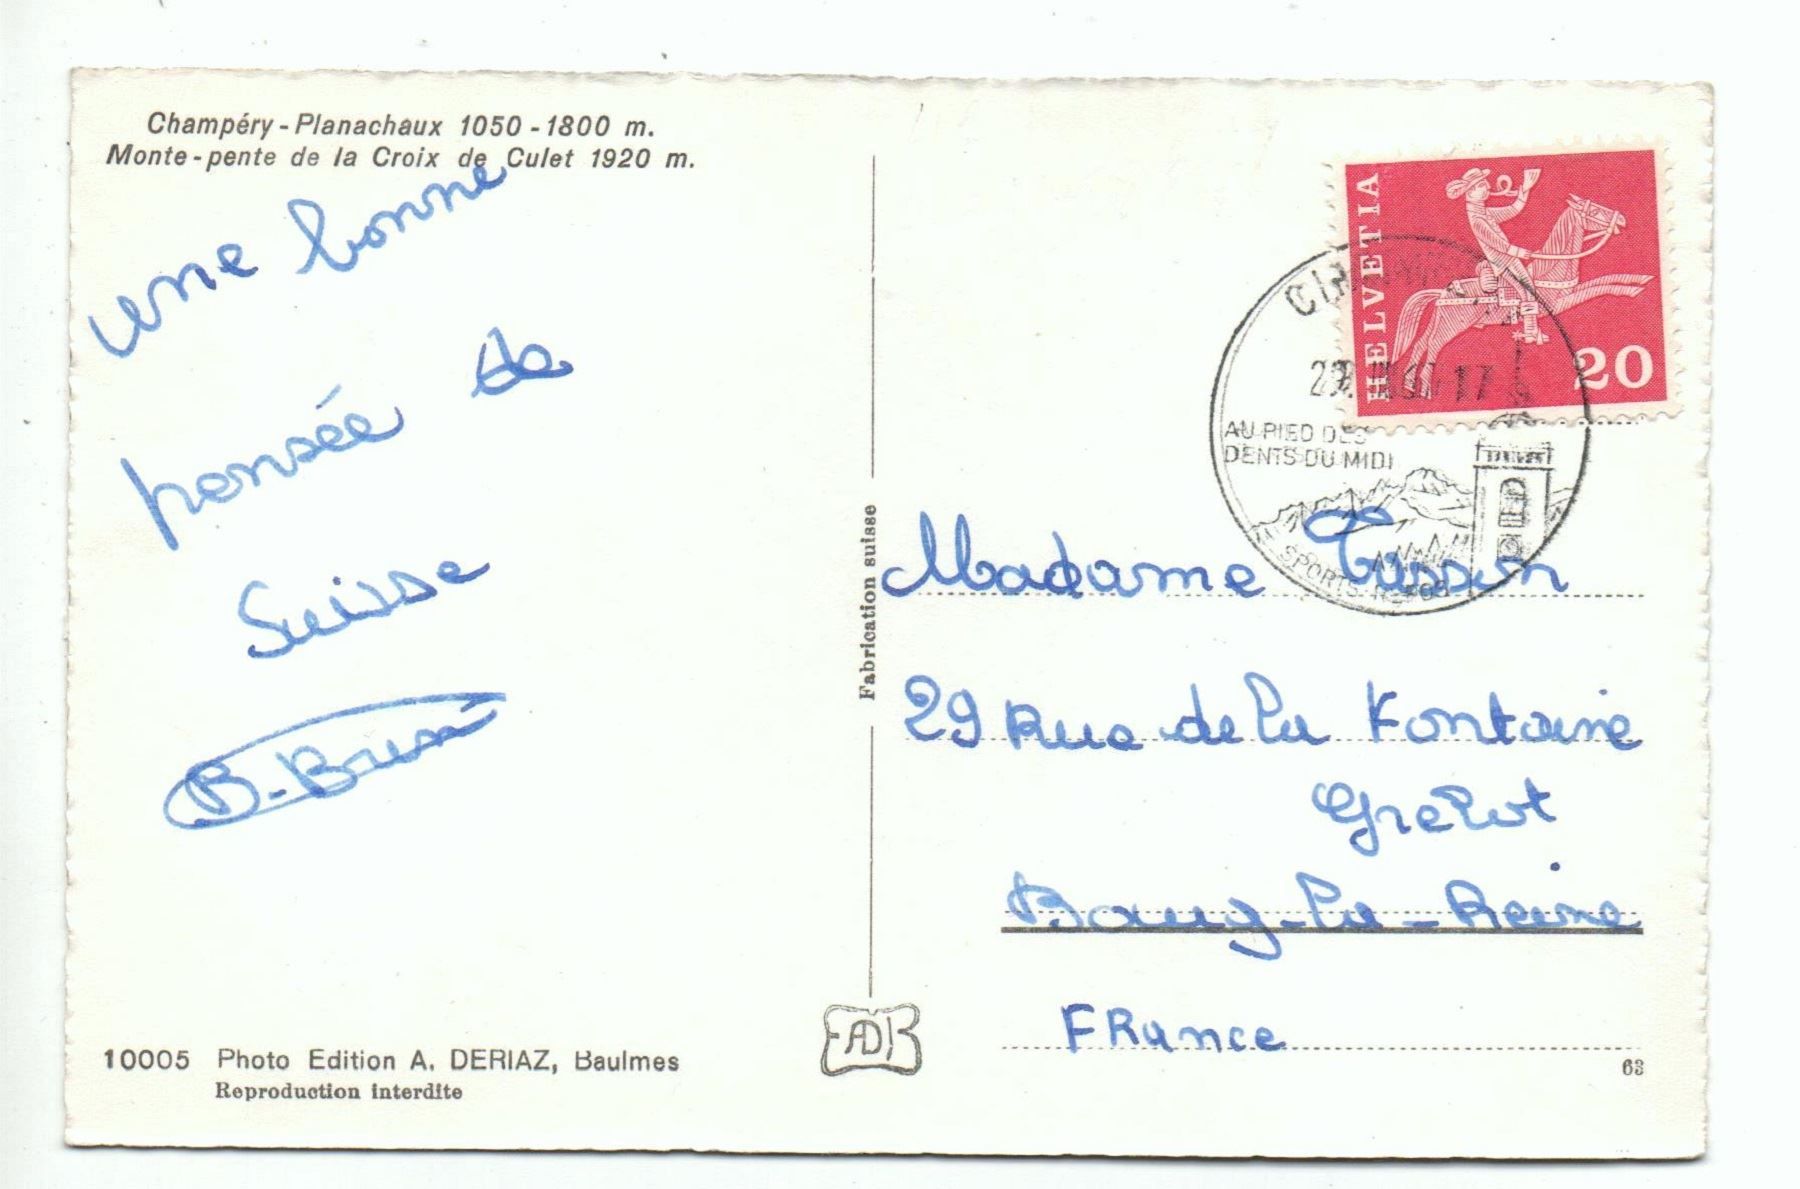 Champéry - Planachaux 1050 - 1800 m.
Monte - pente de la Croix de Culet 1920 m.
une bonne
pensée de
Suisse
Fabrication suisse
10005 Photo Edition A. DERIAZ, Baulmes
Reproduction interdite
HELVETIA
20
17
AU PIED DES
DENTS DU MIDI
SPORTS REPOS
Madame
29 Rue de la Fontaine
Grelot
Bourg-la-Reine
FRance
63